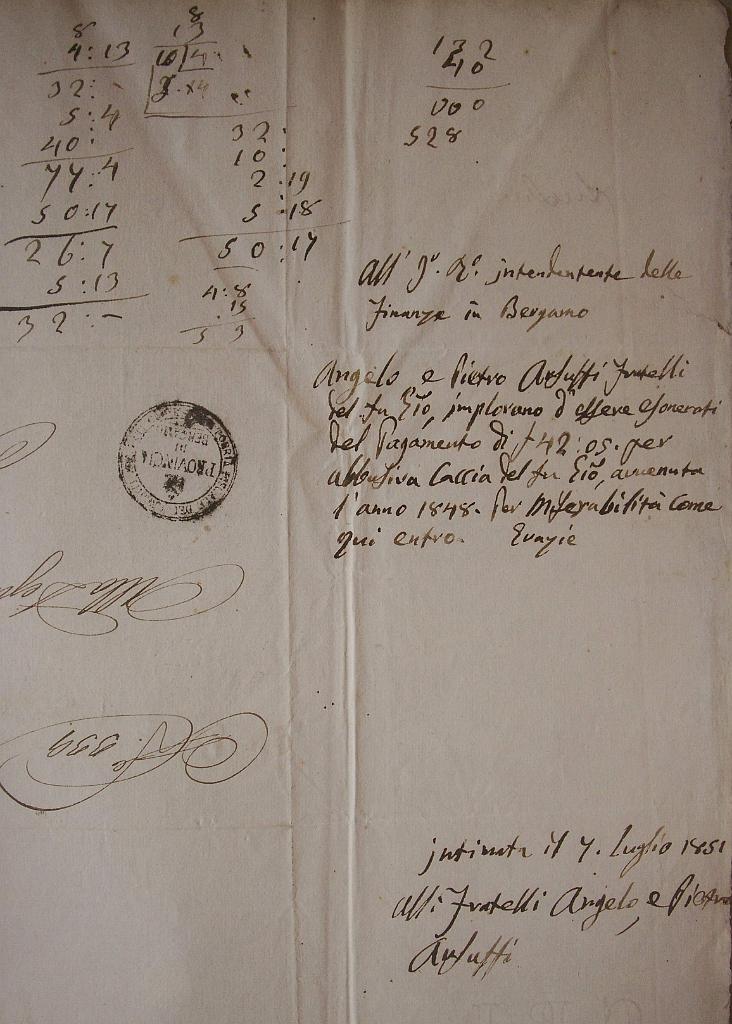 8
4:13
32:
5:4
40:
77:4
50:17
26:7
5:13
32:-
8
13
10 4
32:
10:
2:19
5:18
50:17
4:8
15
53
132
40
000
528
all' I. R. intendentente delle
Finanze in Bergamo
Angelo e Pietro Arsuffi Fratelli
del fu Gio, implorano d'essere esonerati
del Pagamento di £ 42:05. per
abbusiva Caccia del fu Gio, avvenuta
l'anno 1848. Per Miserabilità come
qui entro.
PROVINCIA
DI
BERGAMO
Alla
intimata il 7. Luglio 1851
alli Fratelli Angelo, e Pietro
Arsuffi